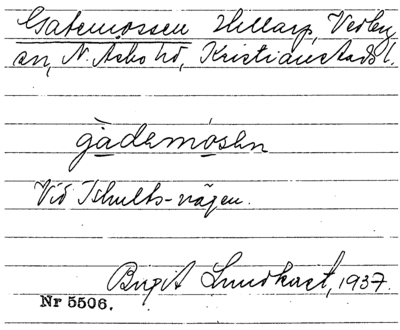 Gatemossen Hillarp, Vedby
sn, N. Åsbo hd, Kristianstads l.
gademosen
Vid Ishults-vägen.
Birgit Lundkvist, 1937.
Nr 5506.